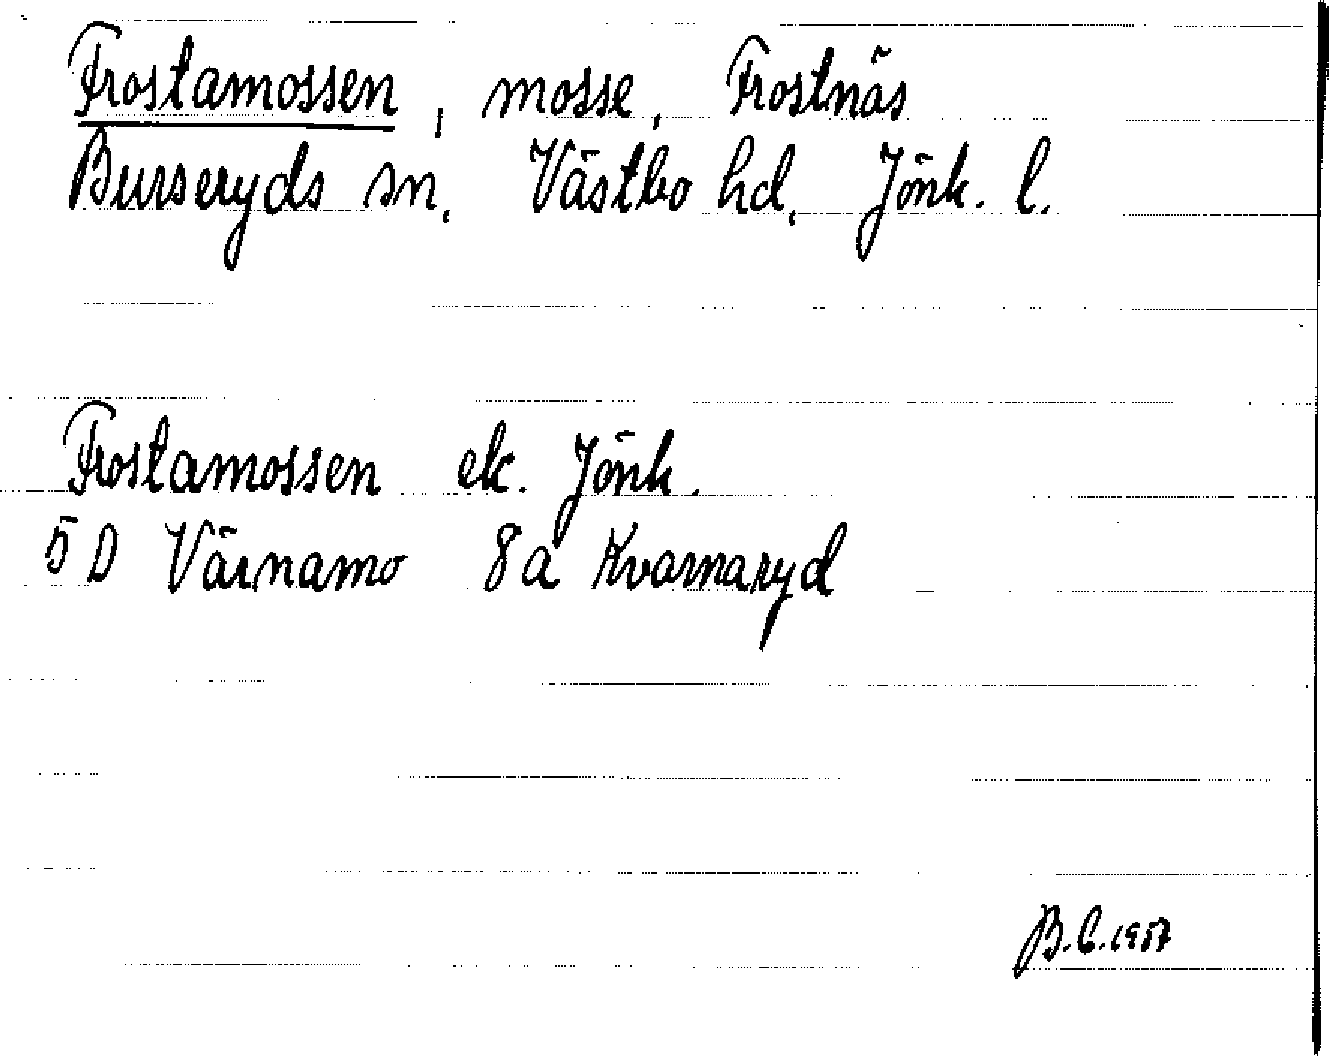 Frostamossen, mosse, Frostnäs
Burseryds sn, Västbo hd, Jönk. l.
Frostamossen ek. Jönk.
5 D Värnamo 8a Kvarnaryd
B.C. 1957